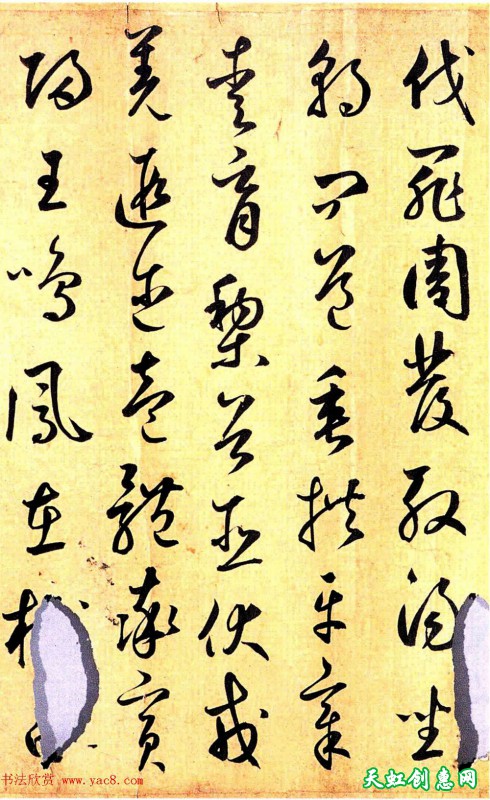 伐罪周發殷湯坐
朝問道垂拱平章
愛育黎首臣伏戎
羌遐邇壹體率賓
歸王鳴鳳在
书法欣赏 www.yac8.com
天虹创惠网